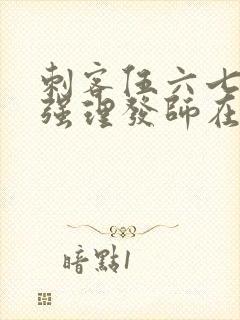 刺客伍六七
强理發師在
暗點1